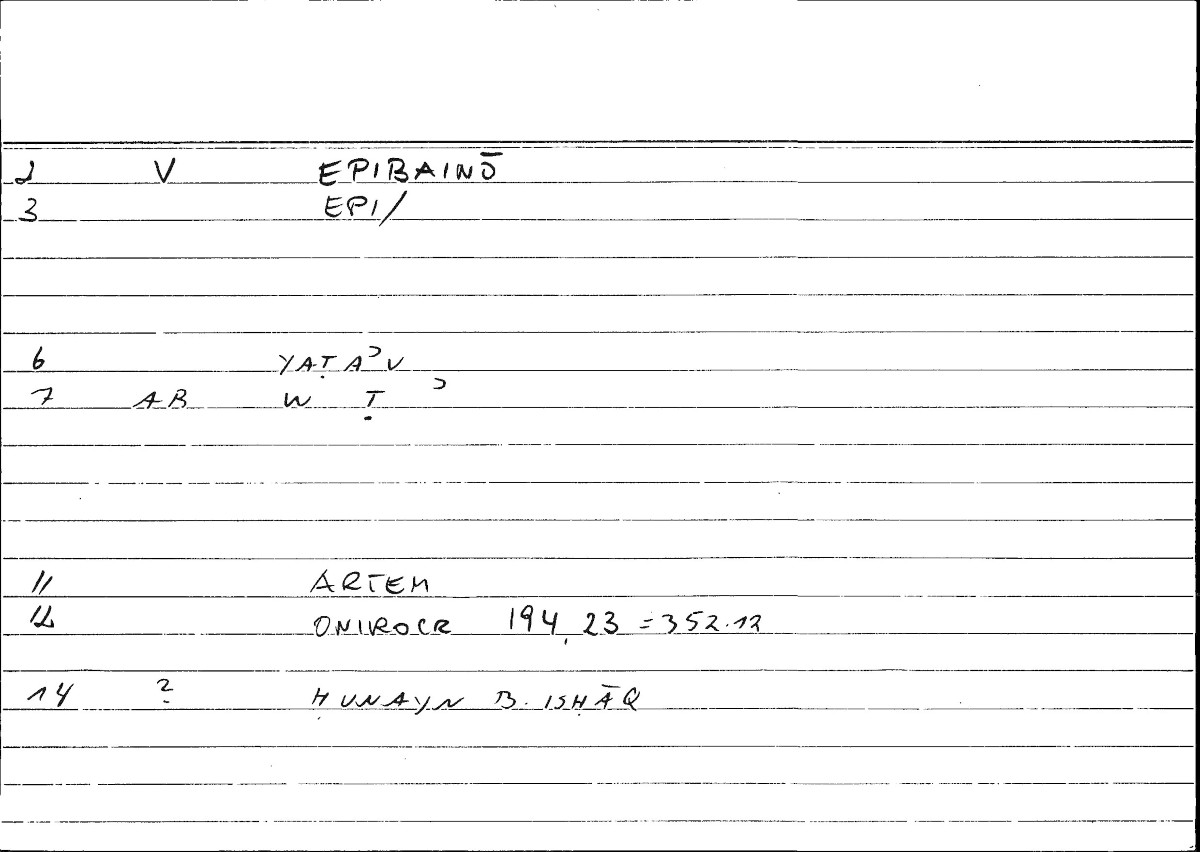 2 V EPIBAINŌ
3 EPI/
6 YAṬAʾU
7 AB W Ṭ ʾ
11 ARTEM
12 ONIROCR 194,23 = 352.12
14 ? ḤUNAYN B. ISḤĀQ